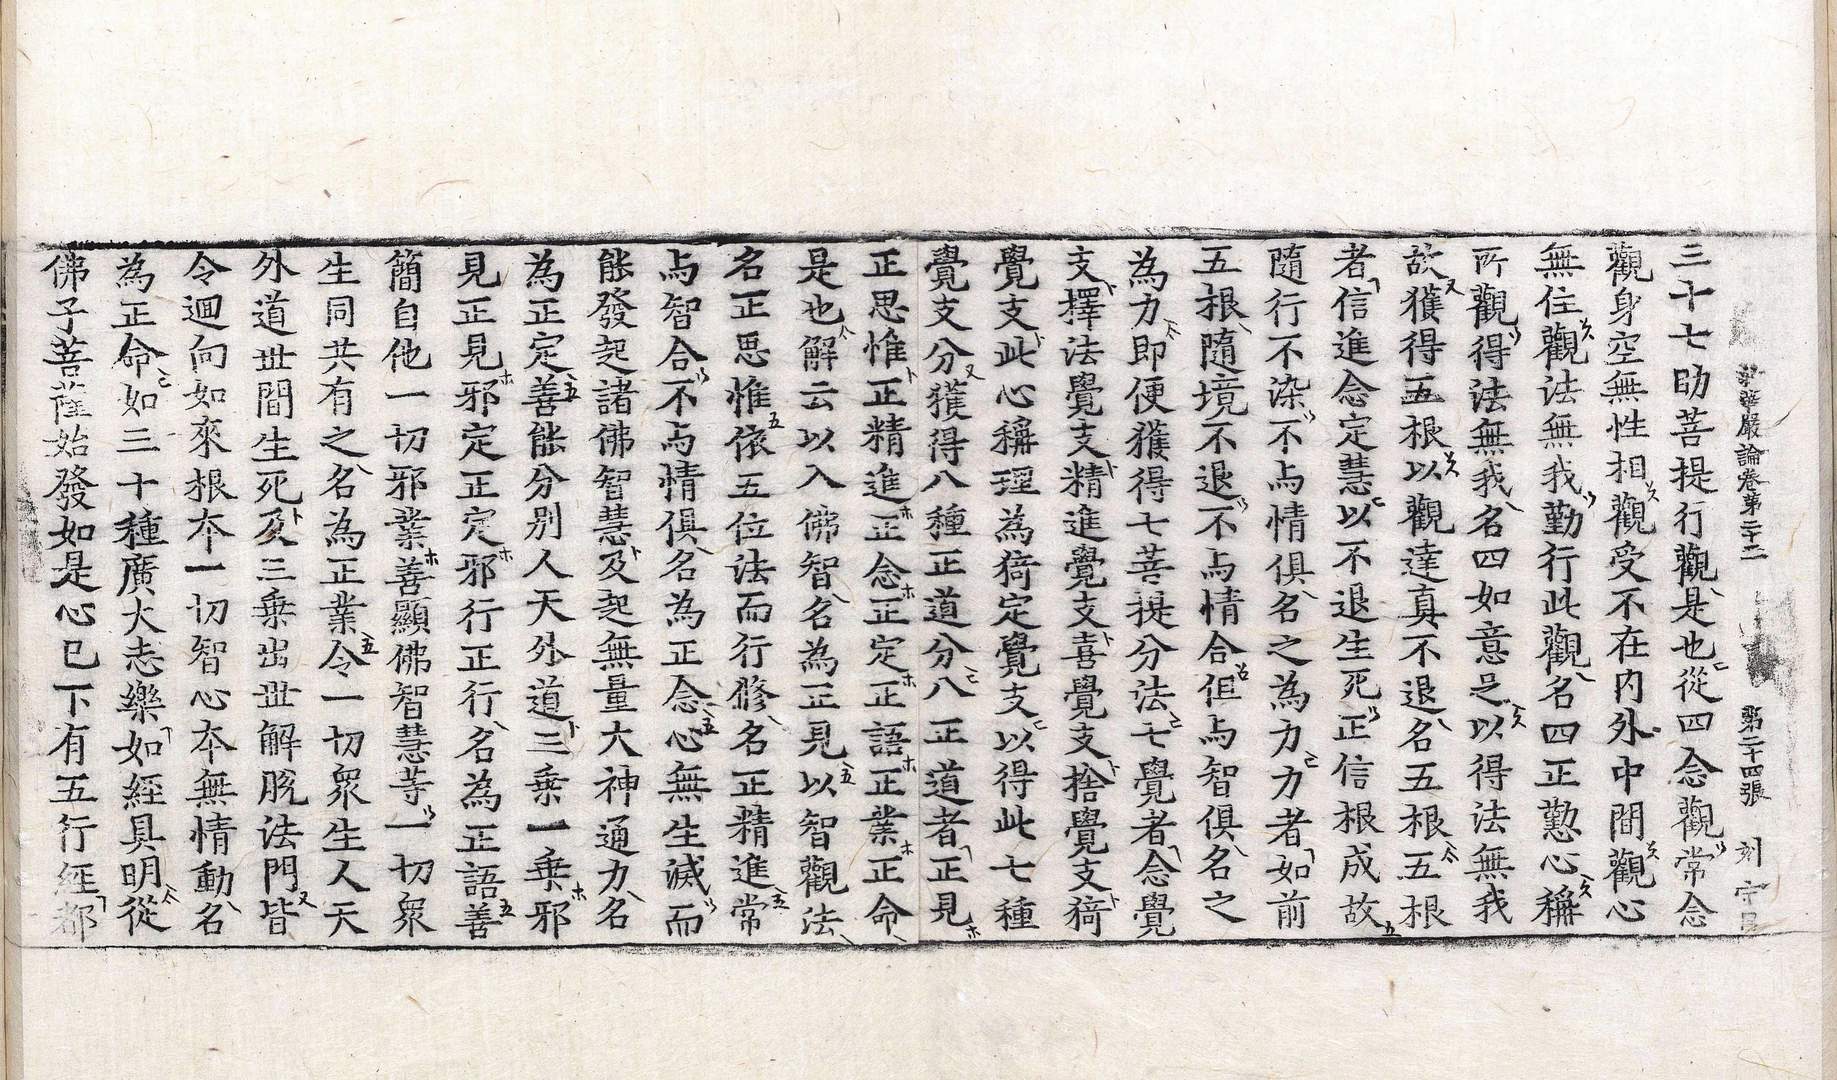 華嚴論卷第二十二 第二十四張 刻守
三十七助菩提行觀是也從四念觀常念
觀身空無性相觀受不在內外中間觀心
無住觀法無我勤行此觀名四正懃心稱
所觀得法無我名四如意足以得法無我
故獲得五根以觀達真不退名五根五根
者信進念定慧以不退生死正信根成故
隨行不染不与情俱名之為力力者如前
五根隨境不退不与情合但与智俱名之
為力即便獲得七菩提分法七覺者念覺
支擇法覺支精進覺支喜覺支捨覺支猗
覺支此心稱理為猗定覺支以得此七種
覺支分獲得八種正道分八正道者正見
正思惟正精進正念正定正語正業正命
是也解云以入佛智名為正見以智觀法
名正思惟依五位法而行修名正精進常
与智合不与情俱名為正念心無生滅而
能發起諸佛智慧及起無量大神通力名
為正定善能分別人天外道三乘一乘邪
見正見邪定正定邪行正行名為正語善
簡自他一切邪業善顯佛智慧等一切衆
生同共有之名為正業令一切衆生人天
外道世間生死及三乘出世解脫法門皆
令迴向如來根本一切智心本無情動名
為正命如三十種廣大志樂如經具明從
佛子菩薩始發如是心已下有五行經都